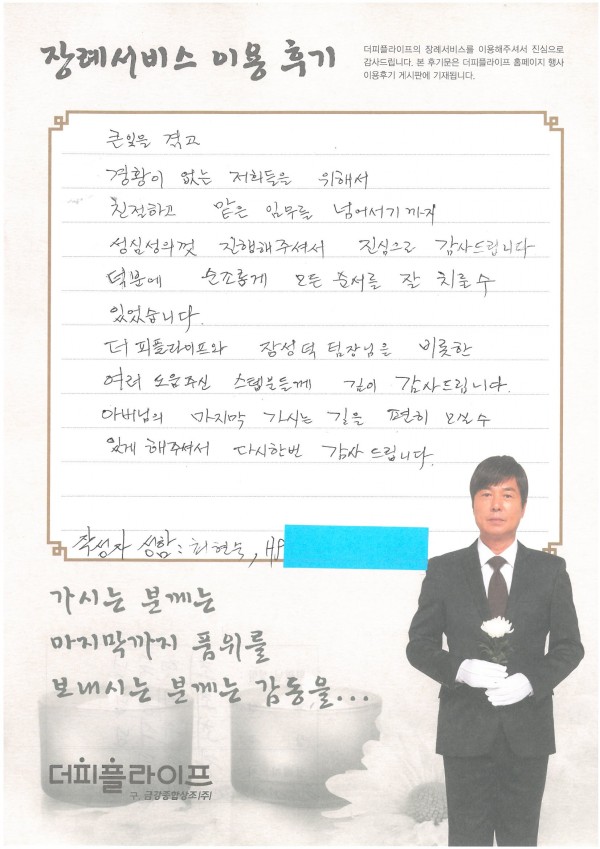 장례서비스 이용 후기
더피플라이프의 장례서비스를 이용해주셔서 진심으로
감사드립니다. 본 후기문은 더피플라이프 홈페이지 행사
이용후기 게시판에 기재됩니다.
큰일을 겪고
경황이 없는 저희들을 위해서
친절하고 맡은 임무를 넘어서기까지
성심성의껏 진행해주셔서 진심으로 감사드립니다
덕분에 순조롭게 모든 순서를 잘 치를수
있었습니다.
더 피플라이프와 장성덕 팀장님을 비롯한
여러 도움주신 스텝분들께 깊이 감사드립니다.
아버님의 마지막 가시는 길을 편히 모실수
있게 해주셔서 다시한번 감사 드립니다.
작성자 성함 : 최현숙, HP
가시는 분께는
마지막까지 품위를
보내시는 분께는 감동을...
더피플라이프
구. 금강종합상조(주)